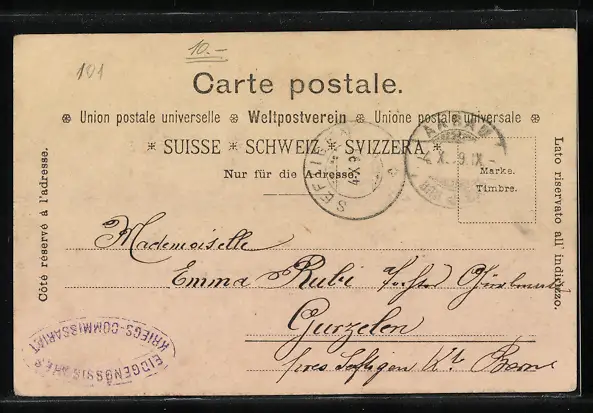 10.-
101
Carte postale.
Union postale universelle Weltpostverein Unione postale universale
* SUISSE * SCHWEIZ * SVIZZERA *
Nur für die Adresse.
Côté réservé à l'adresse.
Lato riservato all' indirizzo.
Marke.
Timbre.
SEFTIGEN
4 X 9
AARAU
4. X. 9. IX -
Mademoiselle
Emma Rubi
Gurzelen
près Seftigen Kt. Bern
EIDGENÖSSISCHES
KRIEGS-COMMISSARIAT